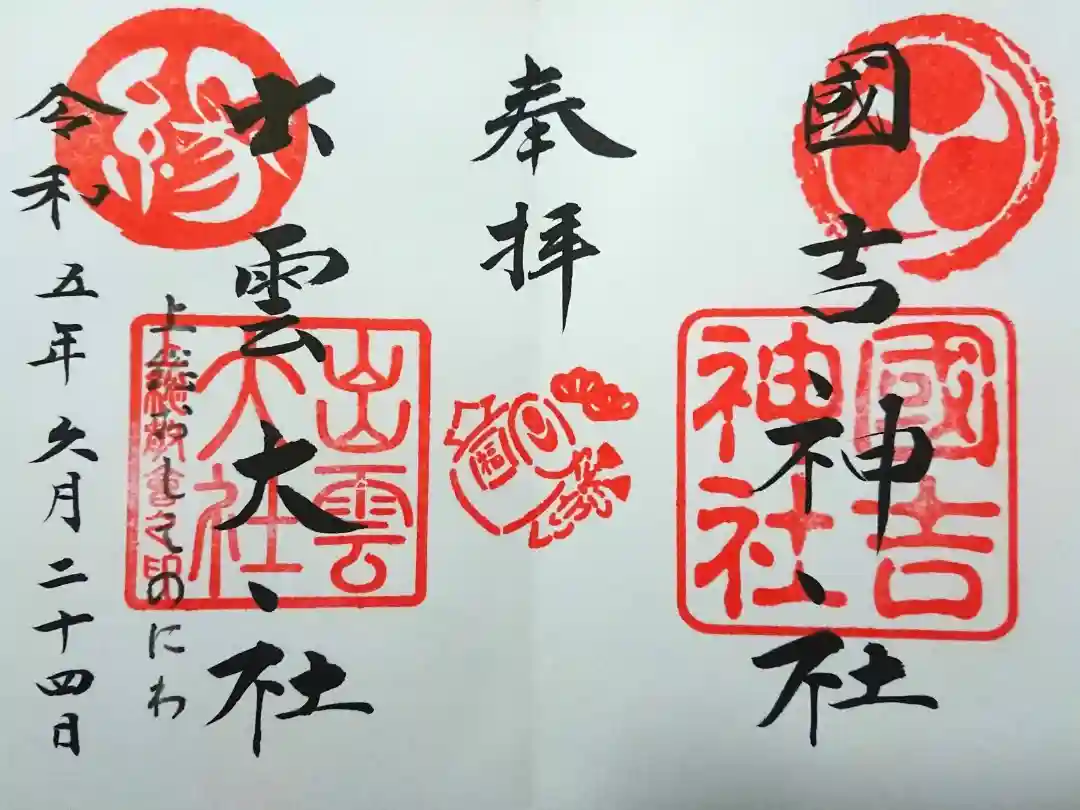 國吉神社
國吉
神社
奉拝
福
縁
出雲大社
出雲
大社
上総教會之印
令和五年六月二十四日